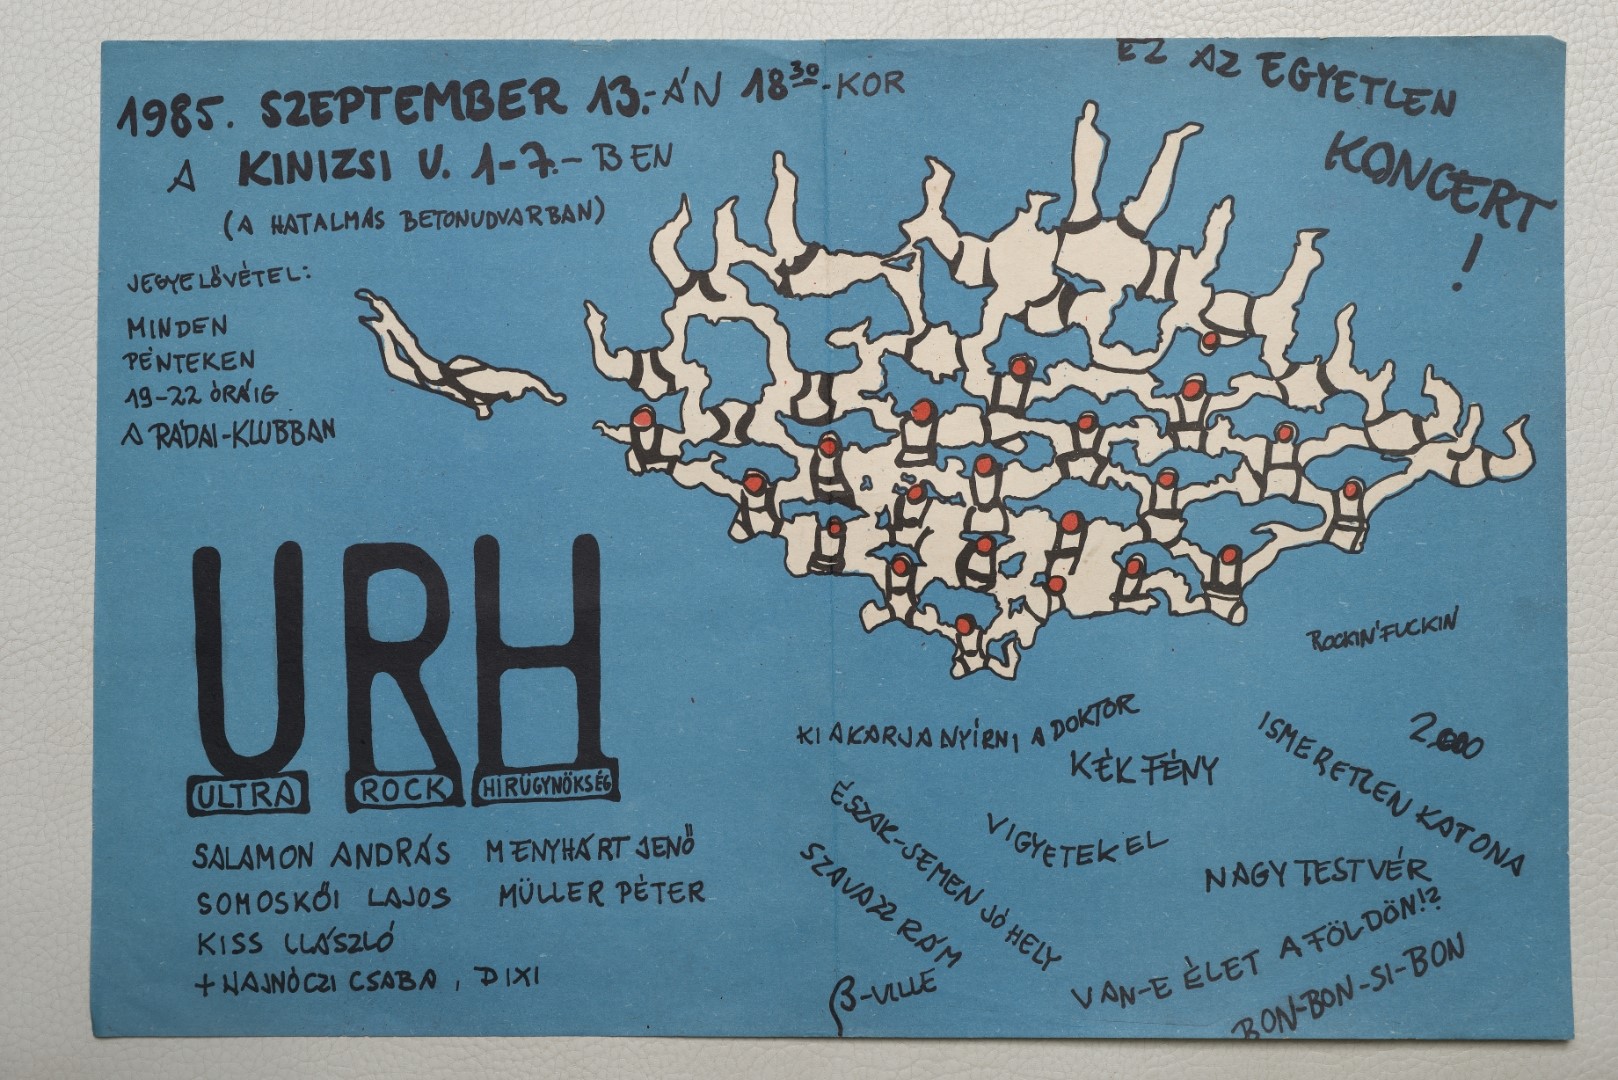 1985. SZEPTEMBER 13.-ÁN 18³⁰-KOR
A KINIZSI U. 1-7.-BEN
(A HATALMAS BETONUDVARBAN)
JEGYELŐVÉTEL:
MINDEN
PÉNTEKEN
19-22 ÓRÁIG
A RÁDAI-KLUBBAN
EZ AZ EGYETLEN
KONCERT
!
URH
ULTRA ROCK HIRÜGYNÖKSÉG
SALAMON ANDRÁS MENYHÁRT JENŐ
SOMOSKŐI LAJOS MÜLLER PÉTER
KISS LLÁSZLÓ
+ HAJNÓCZI CSABA, DIXI
ROCKIN'FUCKIN'
KI AKARJA NYÍRNI A DOKTOR
KÉK FÉNY
ISMERETLEN KATONA
2.000
ÉSZAK-SEMEN JÓ HELY
VIGYETEK EL
SZAVAZZ RÁM
NAGY TESTVÉR
VAN-E ÉLET A FÖLDÖN!?
β-VILLE
BON-BON-SI-BON